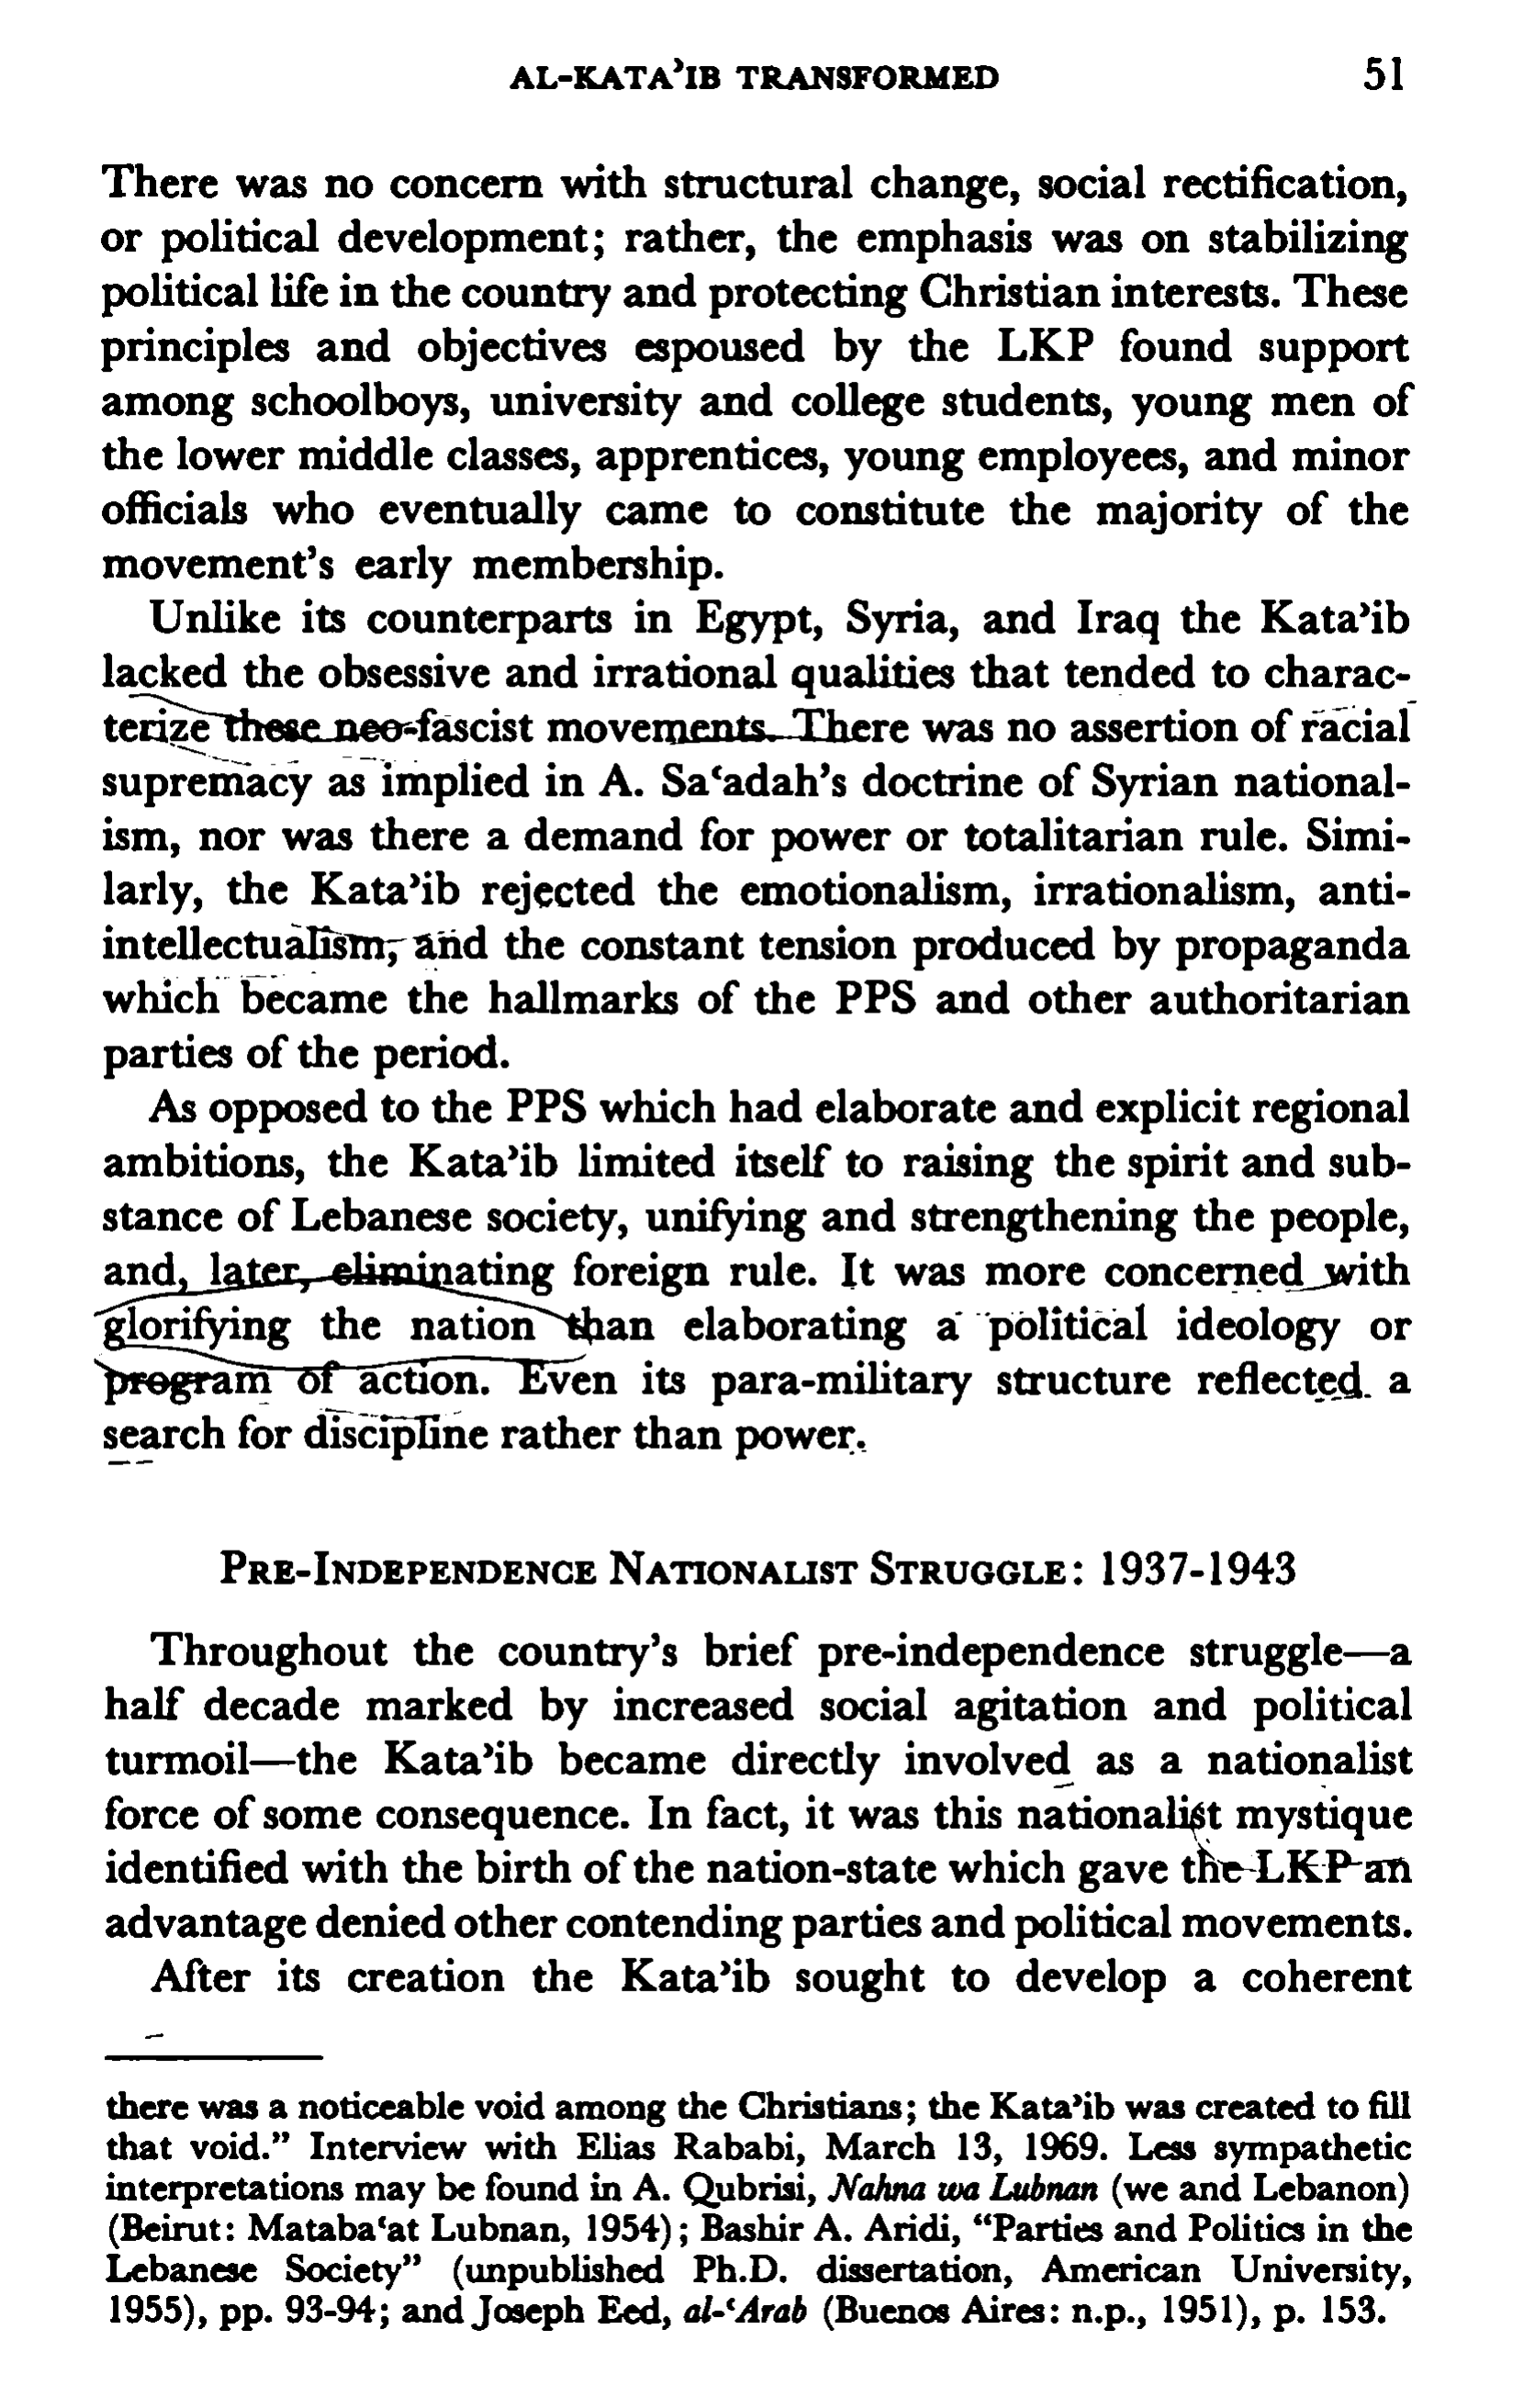 AL-KATA’IB TRANSFORMED 51
There was no concern with structural change, social rectification,
or political development; rather, the emphasis was on stabilizing
political life in the country and protecting Christian interests. These
principles and objectives espoused by the LKP found support
among schoolboys, university and college students, young men of
the lower middle classes, apprentices, young employees, and minor
officials who eventually came to constitute the majority of the
movement’s early membership.
Unlike its counterparts in Egypt, Syria, and Iraq the Kata’ib
lacked the obsessive and irrational qualities that tended to charac-
terize these neo-fascist movements. There was no assertion of racial
supremacy as implied in A. Sa‘adah’s doctrine of Syrian national-
ism, nor was there a demand for power or totalitarian rule. Simi-
larly, the Kata’ib rejected the emotionalism, irrationalism, anti-
intellectualism, and the constant tension produced by propaganda
which became the hallmarks of the PPS and other authoritarian
parties of the period.
As opposed to the PPS which had elaborate and explicit regional
ambitions, the Kata’ib limited itself to raising the spirit and sub-
stance of Lebanese society, unifying and strengthening the people,
and, later, eliminating foreign rule. It was more concerned with
glorifying the nation than elaborating a political ideology or
program of action. Even its para-military structure reflected a
search for discipline rather than power.
PRE-INDEPENDENCE NATIONALIST STRUGGLE: 1937-1943
Throughout the country’s brief pre-independence struggle—a
half decade marked by increased social agitation and political
turmoil—the Kata’ib became directly involved as a nationalist
force of some consequence. In fact, it was this nationalist mystique
identified with the birth of the nation-state which gave the LKP an
advantage denied other contending parties and political movements.
After its creation the Kata’ib sought to develop a coherent
there was a noticeable void among the Christians; the Kata’ib was created to fill
that void.” Interview with Elias Rababi, March 13, 1969. Less sympathetic
interpretations may be found in A. Qubrisi, Nahna wa Lubnan (we and Lebanon)
(Beirut: Mataba‘at Lubnan, 1954); Bashir A. Aridi, “Parties and Politics in the
Lebanese Society” (unpublished Ph.D. dissertation, American University,
1955), pp. 93-94; and Joseph Eed, al-‘Arab (Buenos Aires: n.p., 1951), p. 153.